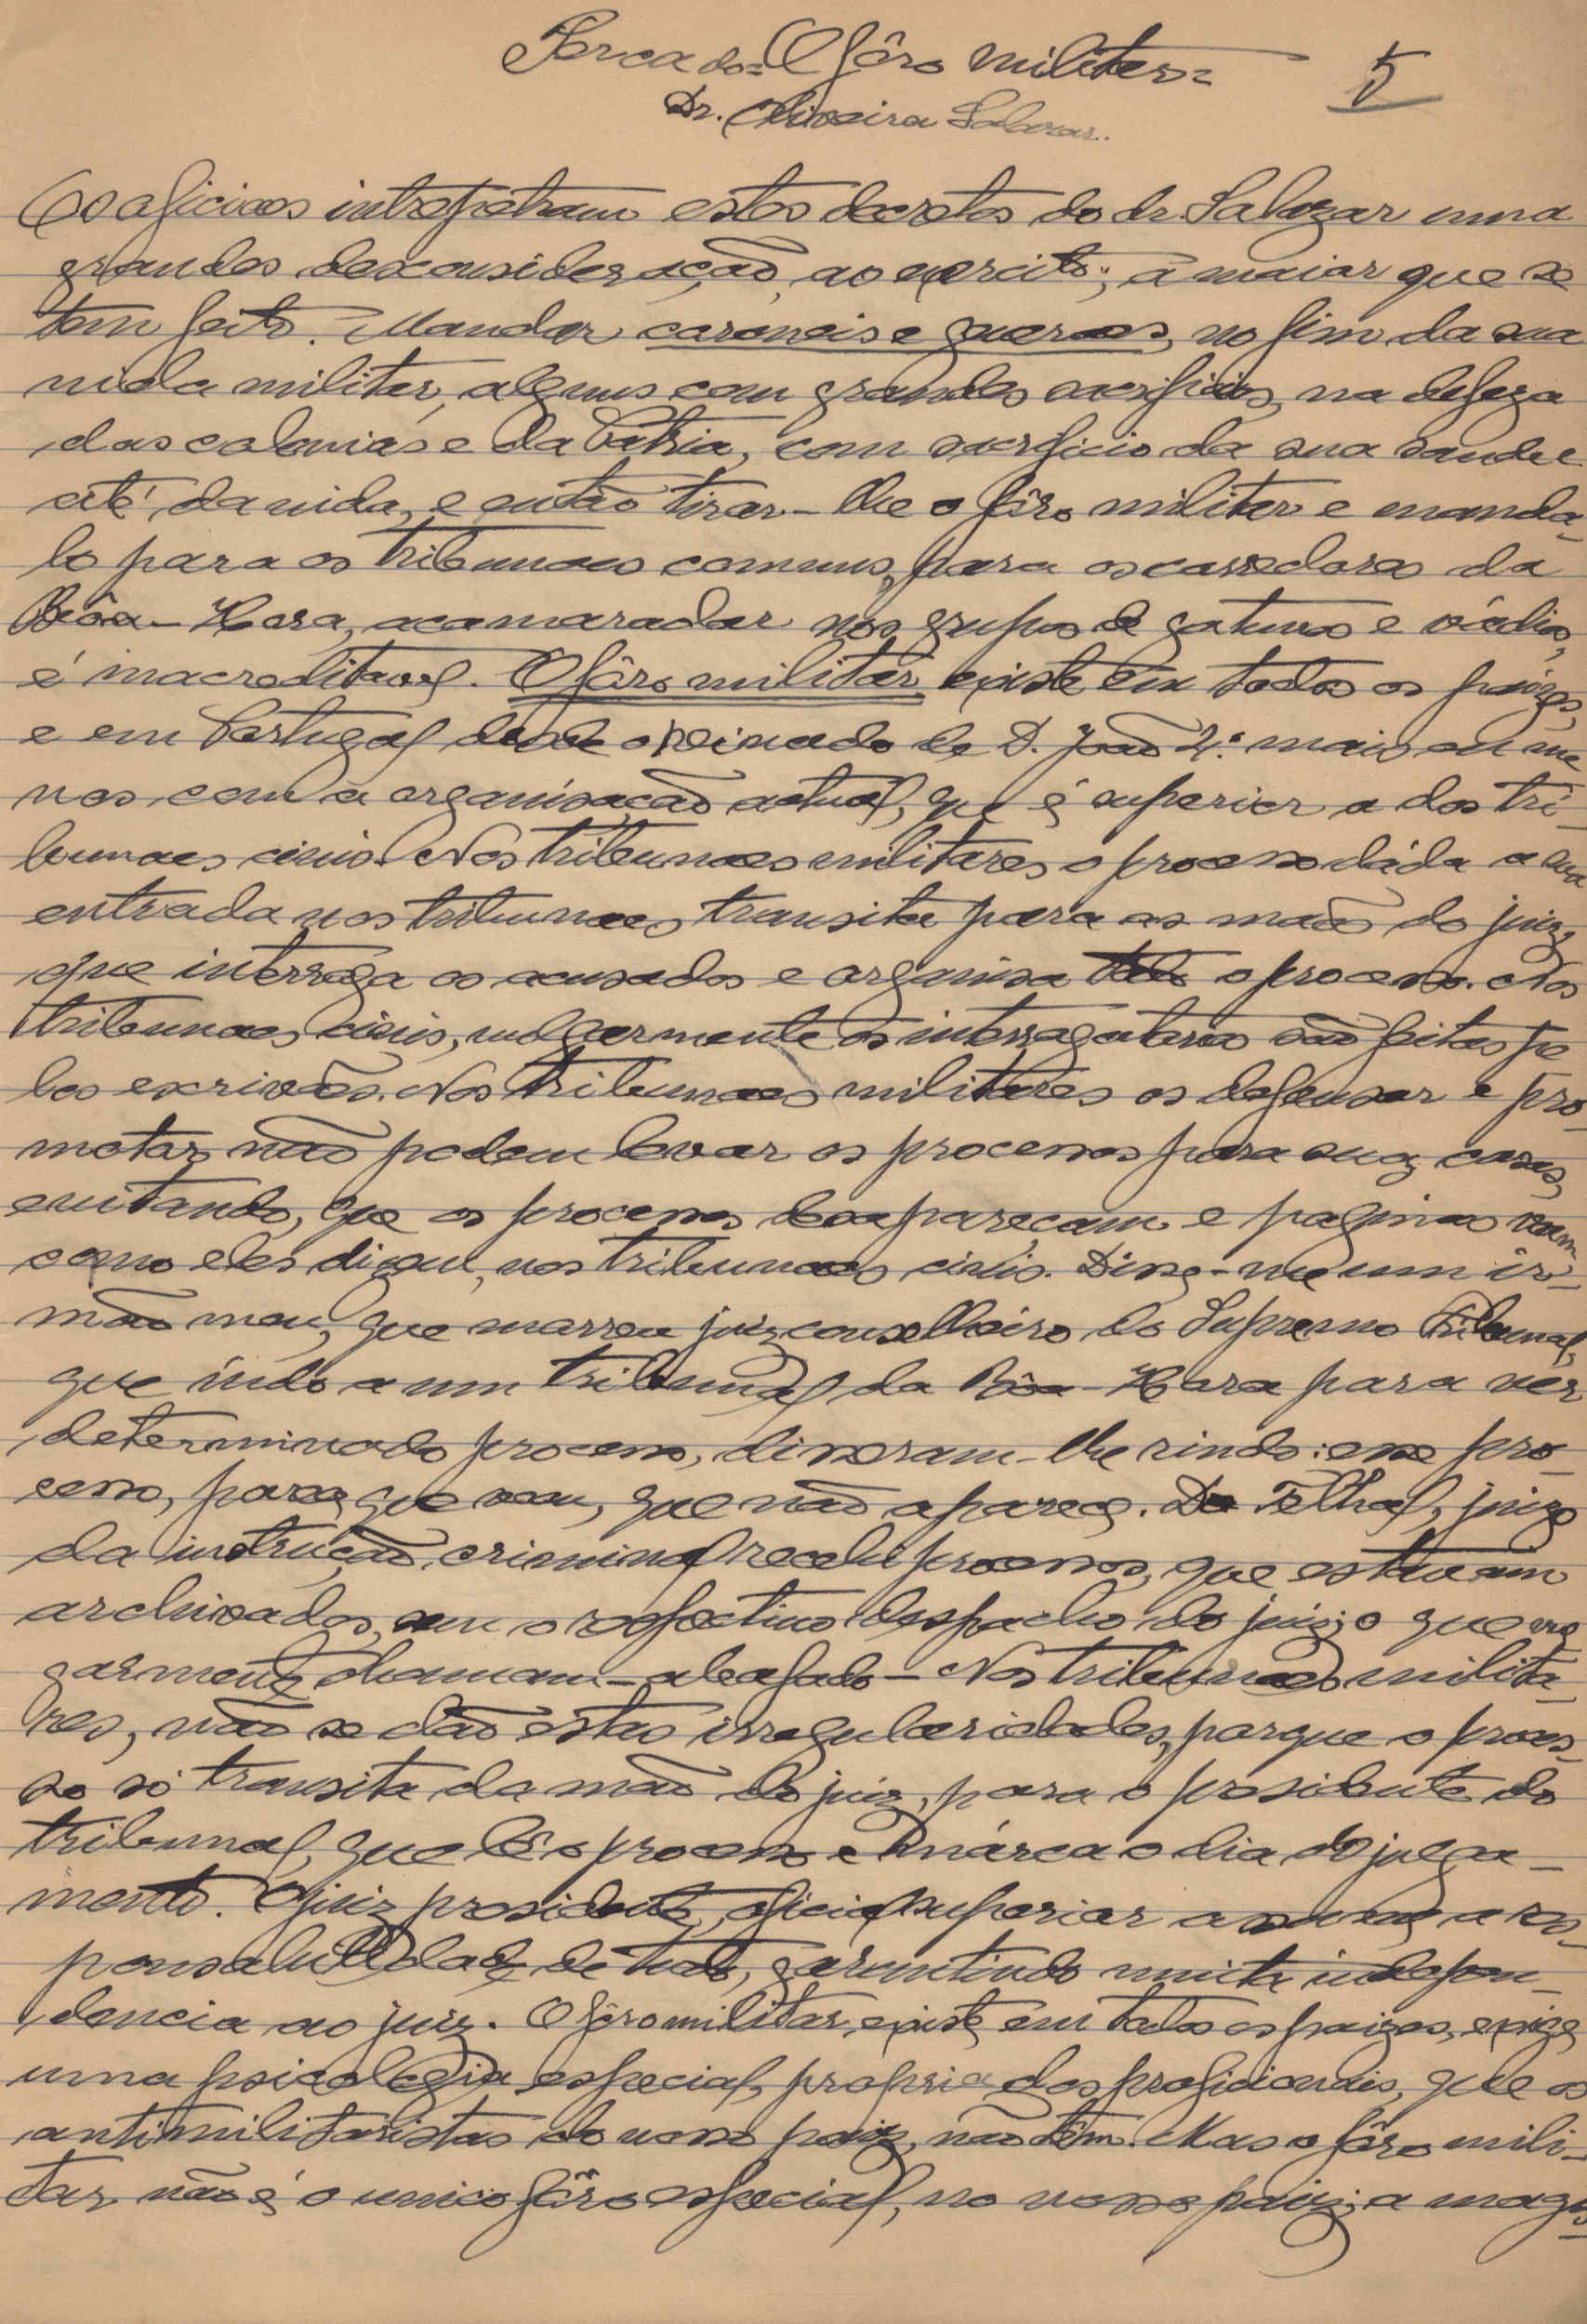 Perca do = O fôro militar =
5
Dr. Oliveira Salazar.
Os oficiaes intrepetram estes decretos do dr. Salazar uma
grandes desconsideração, ao exercito; a maior que se
tem feito. Mandar coroneis e generaes, no fim da sua
vida militar, alguns com grandes sacrificios, na defeza
das colonias e da Patria, com sacrificio da sua saude e
até, da vida, e então tirar-lhe o fôro militar e manda-
lo para os tribunaes comuns, para os corredores da
Bôa-Hora, acamaradar nos grupos de gatunos e vádios,
é inacreditavel. O fôro militar existe em todos os paizes,
e em Portugal desde o reinado de D. João 4.º mais ou me
nos com a organisação actual, que é superior a dos tri-
bunaes civis. Nos tribunaes militares o processo dáda a sua
entrada nos tribunaes transita para as mãos do juiz,
que interróga os acusados e organisa todo o processo. Nos
tribunaes civis, vulgarmente os interrogatorios são feitos pe
los escrivães. Nos tribunaes militares os defensor e pro-
motor, não podem levar os processos para suas casas,
evitando, que os processos desapareçam e paginas voam,
como eles dizem, nos tribunaes civis. Disse-me um ir-
mão meu, que morreu juiz conselheiro do Supremo Tribunal,
que indo a um tribunal da Bôa-Hora para vêr
determinado processo, disseram-lhe rindo: esse pro-
cesso, parece que voou, que não aparece. Do Telhal, juizo
da instrução criminal recebi processos, que estavam
archivados, sem o respectivo despacho do juiz; o que vul
garmente chamam - abafado - Nos tribunaes milita-
res, não se dão estas irregularidades, porque o proces-
so só transita da mão do juiz, para o presidente do
tribunal, que lê o processo e márca o dia do julga-
mento. O juiz presidente, oficial superior assume a res-
ponsabilidade de tudo, garantindo muita indepen-
dencia ao juiz. O fôro militar, existe em todos os paizes, exige
uma psicologia especial, propria dos proficionais, que os
antimilitaristas do nosso paiz, não têm. Mas o fôro mili-
tar não é o unico fôro especial, no nosso paiz; a magis-